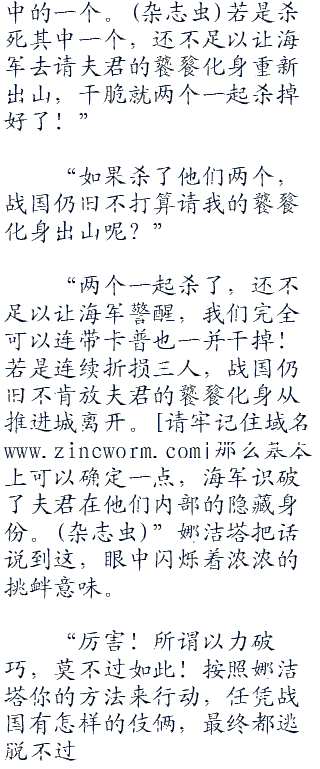 中的一个。(杂志虫)若是杀
死其中一个，还不足以让海
军去请夫君的饕餮化身重新
出山，干脆就两个一起杀掉
好了！”
“如果杀了他们两个，
战国仍旧不打算请我的饕餮
化身出山呢？”
“两个一起杀了，还不
足以让海军警醒，我们完全
可以连带卡普也一并干掉！
若是连续折损三人，战国仍
旧不肯放夫君的饕餮化身从
推进城离开。[请牢记住域名
www.zincworm.com|那么基本
上可以确定一点，海军识破
了夫君在他们内部的隐藏身
份。(杂志虫)”娜洁塔把话
说到这，眼中闪烁着浓浓的
挑衅意味。
“厉害！所谓以力破
巧，莫不过如此！按照娜洁
塔你的方法来行动，任凭战
国有怎样的伎俩，最终都逃
脱不过